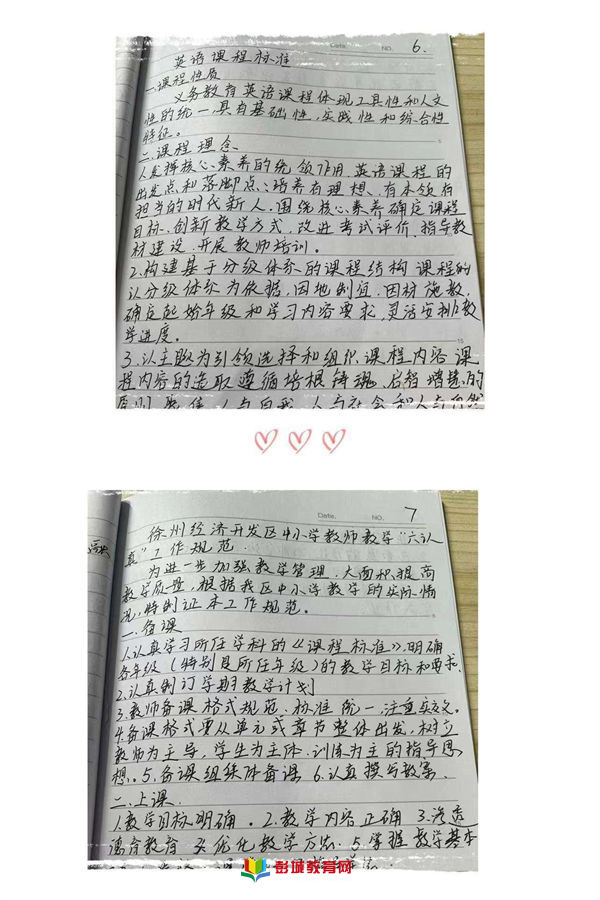 Date. NO. 6.
英语课程标准
一.课程性质
义务教育英语课程体现工具性和人文
性的统一,具有基础性,实践性和综合性
特征。
二.课程理念
1.发挥核心素养的统领作用.英语课程的
出发点和落脚点:培养有理想、有本领有
担当的时代新人.围绕核心素养确定课程
目标.创新教学方式,改进考试评价.指导教
材建设.开展教师培训。
2.构建基于分级体系的课程结构 课程的
以分级体系为依据,因地制宜.因材施教,
确定起始年级和学习内容要求,灵活安排教
学进度。
3.以主题为引领选择和组织课程内容 课
程内容的选取遵循培根铸魂.启智增慧的
原则.聚焦人与自我.人与社会和人与自然
Date. NO. 7
徐州经济开发区中小学教师教学“六认
真”工作规范.
为进一步加强教学管理.大面积提高
教学质量,根据我区中小学教学的实际情
况,特制证本工作规范。
一.备课
1.认真学习所任学科的《课程标准》.明确
各年级(特别是所任年级)的教学目标和要求.
2.认真制订学期教学计划
3.教师备课格式规范.标准统一,注重实效。
4.备课格式要从单元或章节整体出发,树立
教师为主导,学生为主体.训练为主的指导思
想。5.备课组集体备课 6.认真撰写教案.
二.上课.
1.教学目标明确。2.教学内容正确 3.渗透
德育教育 4.优化教学方法.5.掌握教学基本
彭城教育网